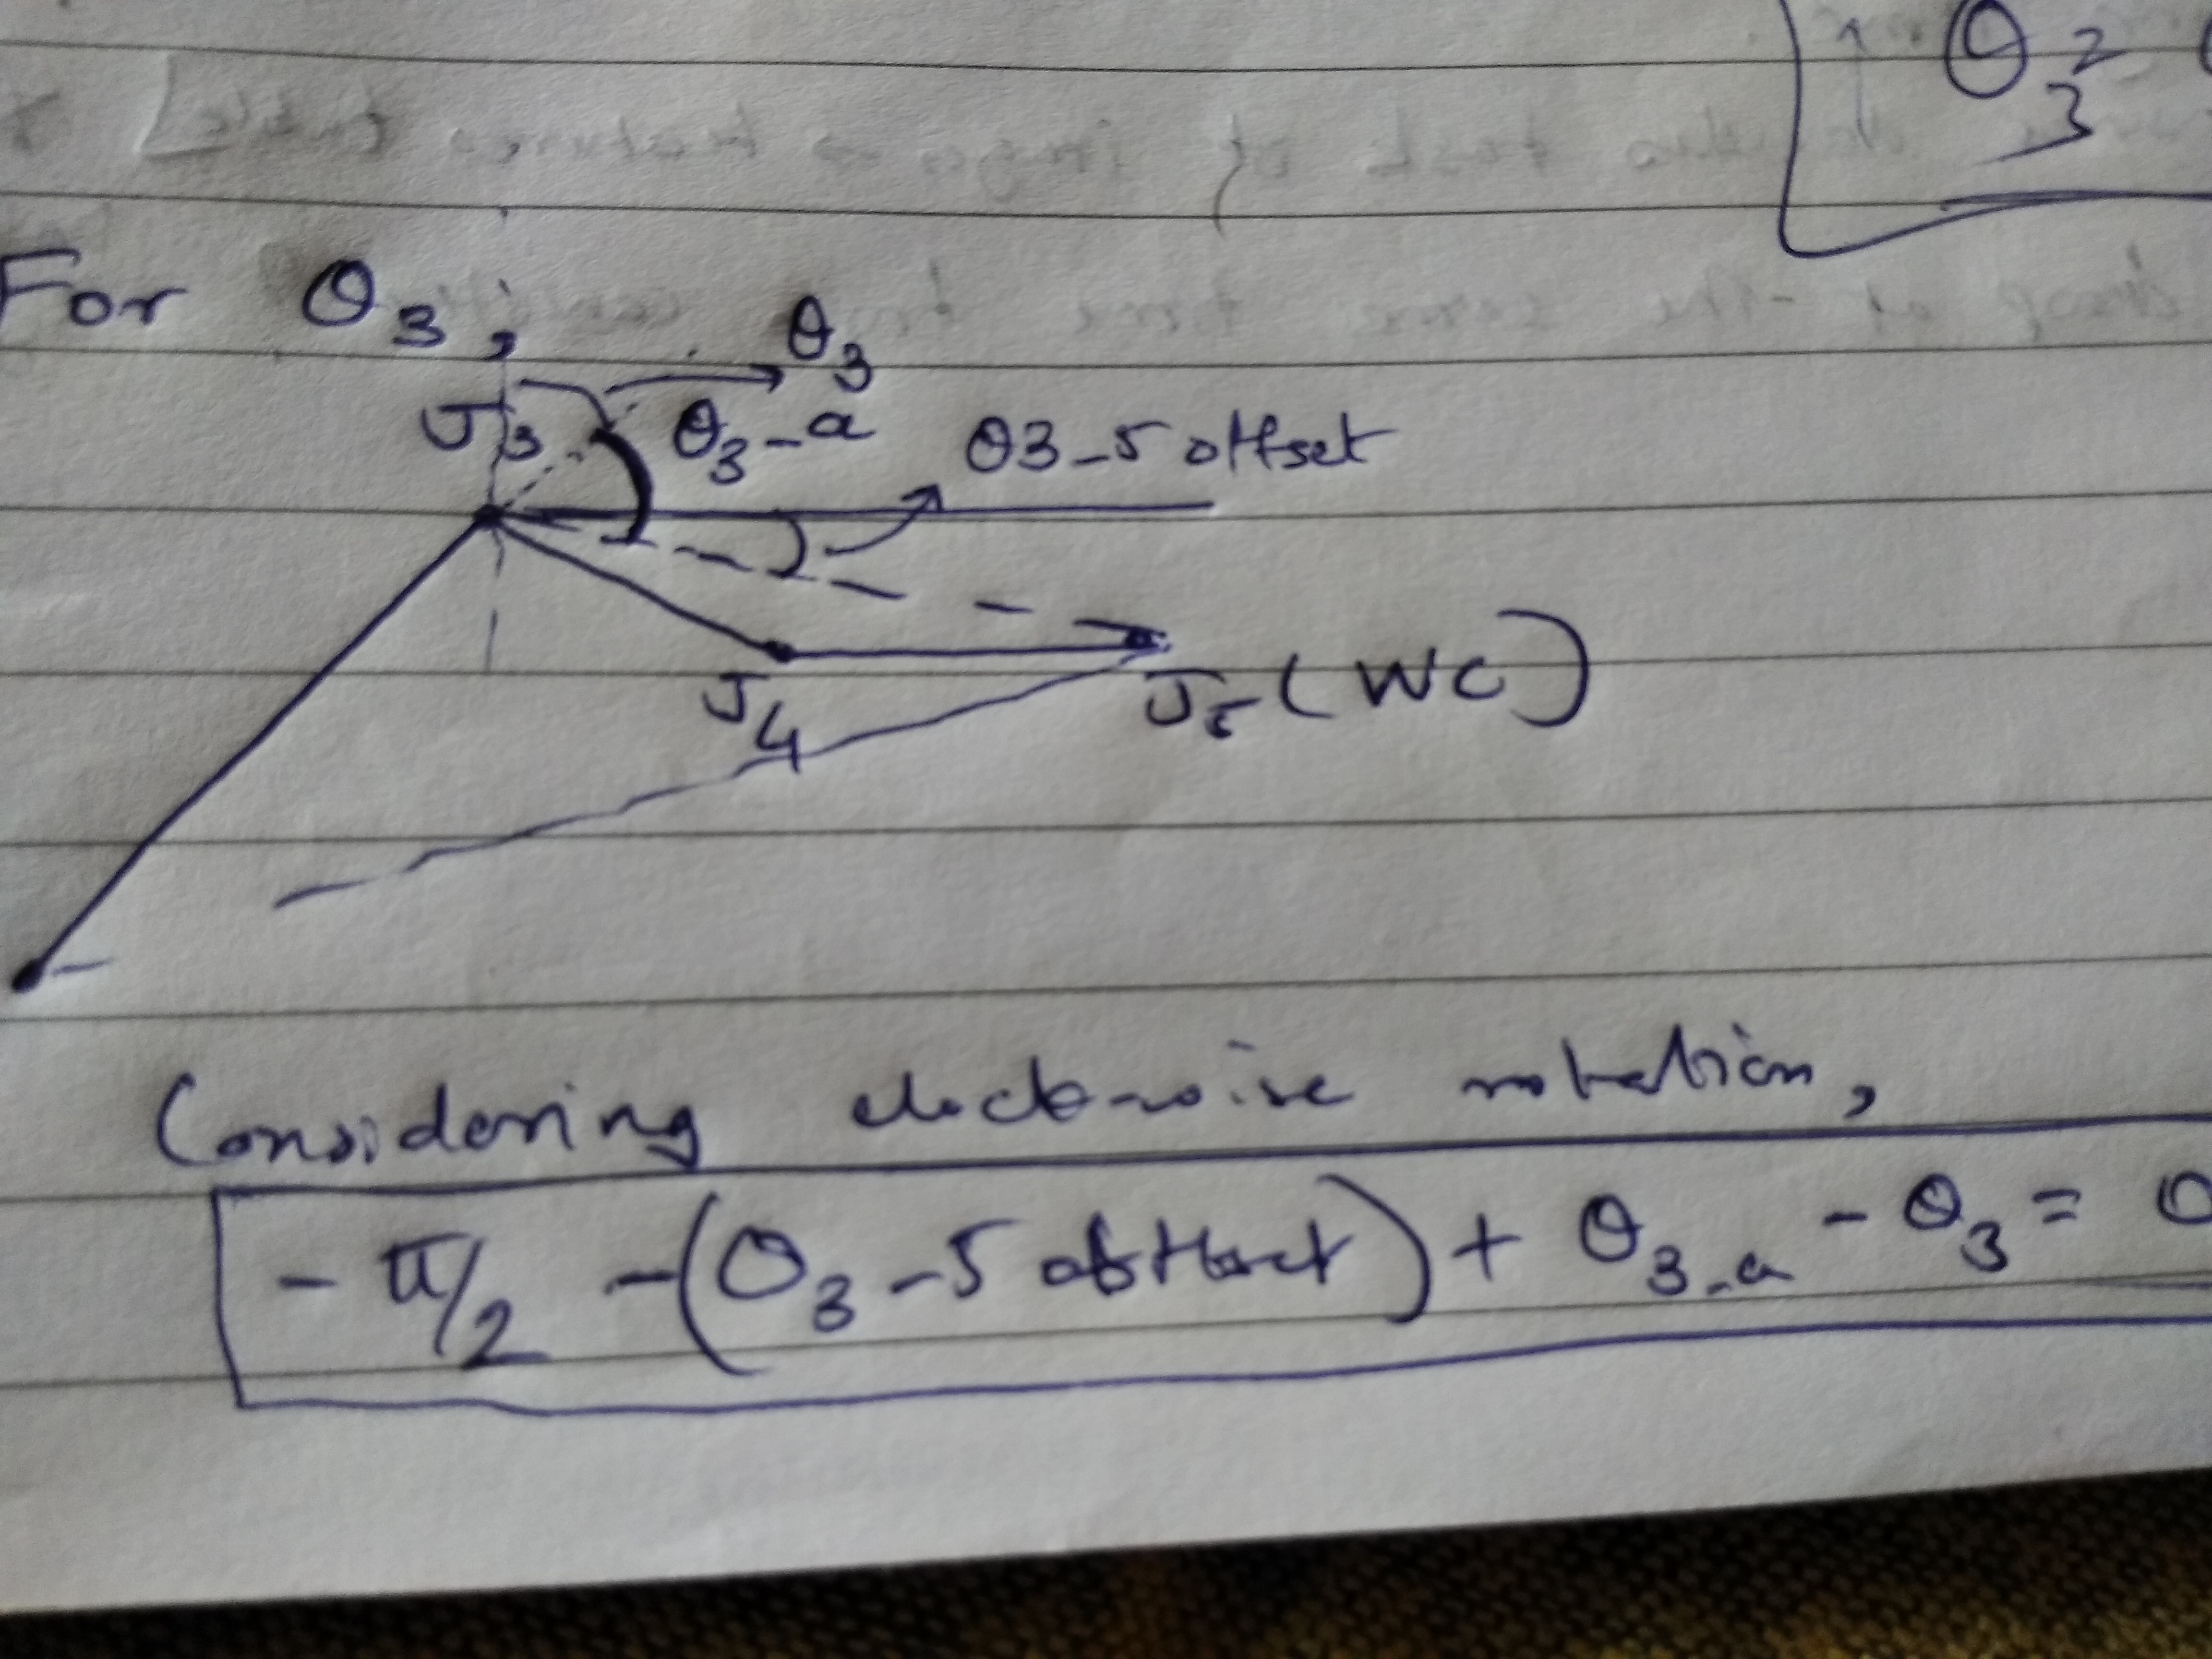 θ₂
3
For θ₃,
θ₃
J₃
θ₃_a
θ3_5 offset
J₄
J₅(WC)
Considering clockwise rotation,
-π/2 -(θ₃_5 offset) + θ₃_a - θ₃ = 0